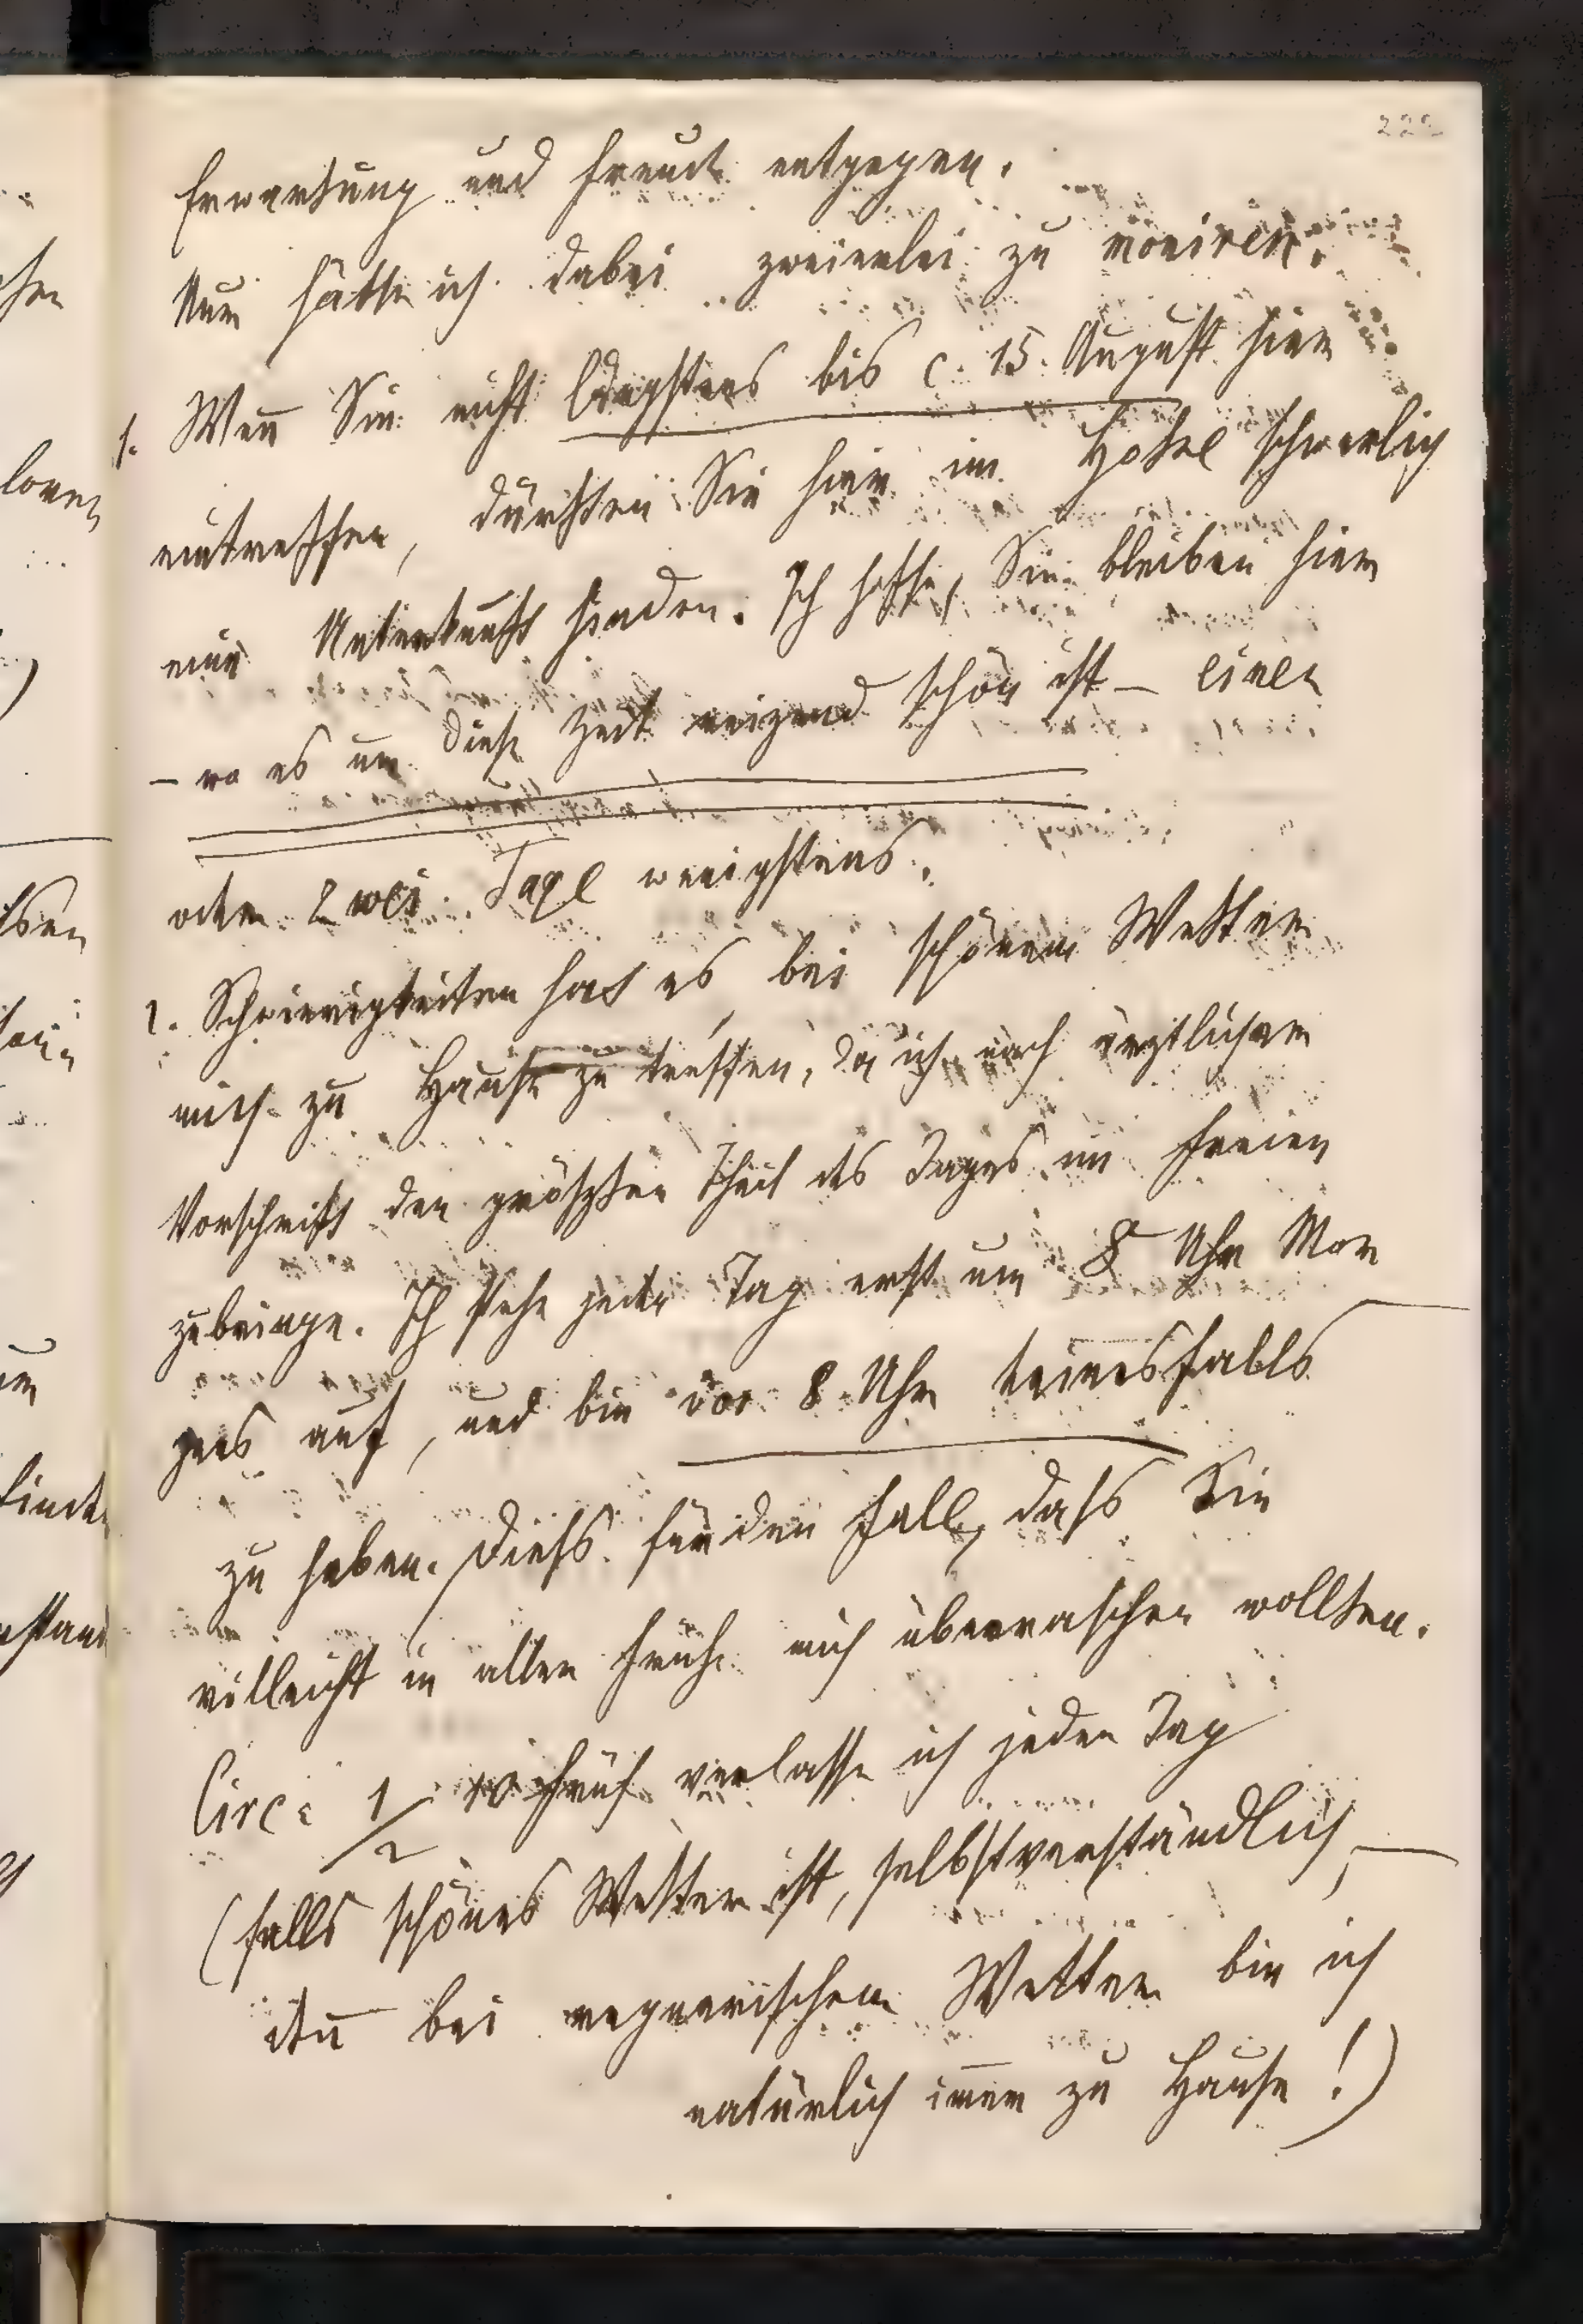 222
Erwartung und Freude entgegen.
Nun hätte ich dabei zweierlei zu moniren.
1. Wen̄ Sie nicht längstens bis c. 15. August hier
eintreffen, dürften Sie hier im Hotel schwerlich
eine Unterkunft finden. Ich hoffe, Sie bleiben hier
– wo es um diese Zeit reizend schön ist – einen
oder zwei Tage wenigstens.
2. Schwierigkeiten hat es, bei schönem Wetter
mich zu Hause zu treffen, da ich nach ärztlicher
Vorschrift den größten Theil des Tages im Freien
zubringe. Ich stehe jeden Tag erst um 8 Uhr Mor
gens auf, und bin vor 8 Uhr keinesfalls
zu haben. Diess für den Fall, dass Sie
vielleicht in aller Frühe mich überraschen wollten.
Circa 1/2 10 früh verlasse ich jeden Tag
(falls schönes Wetter ist, selbstverständlich, –
den̄ bei regnerischem Wetter bin ich
natürlich im̄er zu Hause!)